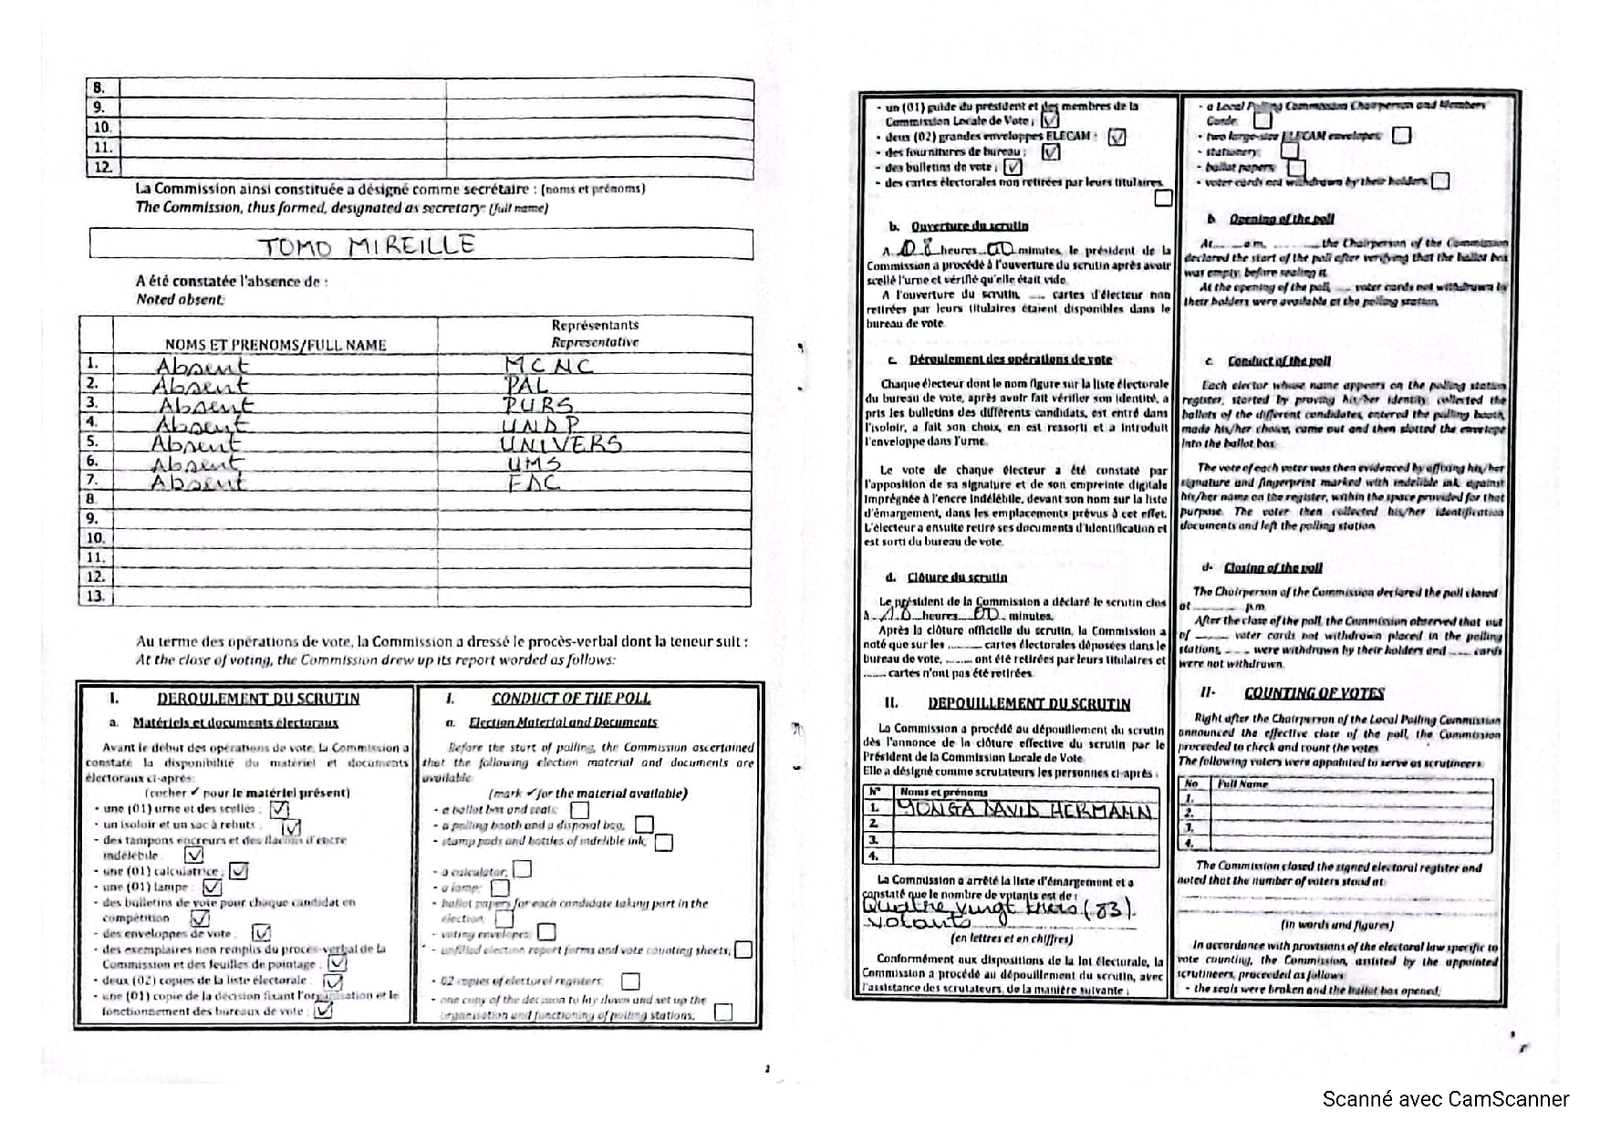 8.
9.
10.
11.
12.
La Commission ainsi constituée a désigné comme secrétaire : (noms et prénoms)
The Commission, thus formed, designated as secretary: (full name)
TOMO MIREILLE
A été constatée l'absence de :
Noted absent:
NOMS ET PRENOMS/FULL NAME Représentants
Representative
1. Absent MCNC
2. Absent PAL
3. Absent PURS
4. Absent UNDP
5. Absent UNIVERS
6. Absent UMS
7. Absent FDC
8.
9.
10.
11.
12.
13.
Au terme des opérations de vote, la Commission a dressé le procès-verbal dont la teneur suit :
At the close of voting, the Commission drew up its report worded as follows:
I. DEROULEMENT DU SCRUTIN
a. Matériels et documents électoraux
Avant le début des opérations de vote, la Commission a
constaté la disponibilité du matériel et documents
électoraux ci-après:
(cocher ✓ pour le matériel présent)
- une (01) urne et des scellés ; ☑
- un isoloir et un sac à rebuts ; ☑
- des tampons encreurs et des flacons d'encre
indélébile : ☑
- une (01) calculatrice ; ☑
- une (01) lampe ; ☑
- des bulletins de vote pour chaque candidat en
compétition ☑
- des enveloppes de vote ; ☑
- des exemplaires non remplis du procès-verbal de la
Commission et des feuilles de pointage ; ☑
- deux (02) copies de la liste électorale ; ☑
- une (01) copie de la décision fixant l'organisation et le
fonctionnement des bureaux de vote ; ☑
I. CONDUCT OF THE POLL
a. Election Material and Documents
Before the start of polling, the Commission ascertained
that the following election material and documents are
available
(mark ✓ for the material available)
- a ballot box and seals; ☐
- a polling booth and a disposal bag; ☐
- stamp pads and bottles of indelible ink; ☐
- a calculator; ☐
- a lamp; ☐
- ballot papers for each candidate taking part in the
election; ☐
- voting envelopes; ☐
- unfilled election report forms and vote counting sheets; ☐
- 02 copies of electoral registers; ☐
- one copy of the decision to lay down and set up the
organisation and functioning of polling stations; ☐
- un (01) guide du président et des membres de la
Commission Locale de Vote ; ☑
- deux (02) grandes enveloppes ELECAM ; ☑
- des fournitures de bureau ; ☑
- des bulletins de vote ; ☑
- des cartes électorales non retirées par leurs titulaires.
☐
b. Ouverture du scrutin
A 08 heures 00 minutes, le président de la
Commission a procédé à l'ouverture du scrutin après avoir
scellé l'urne et vérifié qu'elle était vide.
A l'ouverture du scrutin, .... cartes d'électeur non
retirées par leurs titulaires étaient disponibles dans le
bureau de vote.
c. Déroulement des opérations de vote
Chaque électeur dont le nom figure sur la liste électorale
du bureau de vote, après avoir fait vérifier son identité, a
pris les bulletins des différents candidats, est entré dans
l'isoloir, a fait son choix, en est ressorti et a introduit
l'enveloppe dans l'urne.
Le vote de chaque électeur a été constaté par
l'apposition de sa signature et de son empreinte digitale
imprégnée à l'encre indélébile, devant son nom sur la liste
d'émargement, dans les emplacements prévus à cet effet.
L'électeur a ensuite retiré ses documents d'identification et
est sorti du bureau de vote.
d. Clôture du scrutin
Le président de la Commission a déclaré le scrutin clos
à 18 heures 00 minutes.
Après la clôture officielle du scrutin, la Commission a
noté que sur les ........ cartes électorales déposées dans le
bureau de vote, ...... ont été retirées par leurs titulaires et
...... cartes n'ont pas été retirées.
II. DEPOUILLEMENT DU SCRUTIN
La Commission a procédé au dépouillement du scrutin
dès l'annonce de la clôture effective du scrutin par le
Président de la Commission Locale de Vote.
Elle a désigné comme scrutateurs les personnes ci-après :
N° Noms et prénoms
1. YONGA DAVID HERMANN
2.
3.
4.
La Commission a arrêté la liste d'émargement et a
constaté que le nombre de votants est de :
Quatre vingt trois (83).
votants
(en lettres et en chiffres)
Conformément aux dispositions de la loi électorale, la
Commission a procédé au dépouillement du scrutin, avec
l'assistance des scrutateurs, de la manière suivante :
- a Local Polling Commission Chairperson and Members
Guide ☐
- two large-size ELECAM envelopes; ☐
- stationery; ☐
- ballot papers; ☐
- voter cards not withdrawn by their holders. ☐
b Opening of the poll
At.... a.m. ........, the Chairperson of the Commission
declared the start of the poll after verifying that the ballot box
was empty, before sealing it.
At the opening of the poll, .... voter cards not withdrawn by
their holders were available at the polling station.
c. Conduct of the poll
Each elector whose name appears on the polling station
register, started by proving his/her identity, collected the
ballots of the different candidates, entered the polling booth,
made his/her choice, came out and then slotted the envelope
into the ballot box.
The vote of each voter was then evidenced by affixing his/her
signature and fingerprint marked with indelible ink against
his/her name on the register, within the space provided for that
purpose. The voter then collected his/her identification
documents and left the polling station.
d- Closing of the poll
The Chairperson of the Commission declared the poll closed
at .......... p.m.
After the close of the poll, the Commission observed that out
of ....... voter cards not withdrawn placed in the polling
stations, ..... were withdrawn by their holders and ..... cards
were not withdrawn.
II- COUNTING OF VOTES
Right after the Chairperson of the Local Polling Commission
announced the effective close of the poll, the Commission
proceeded to check and count the votes.
The following voters were appointed to serve as scrutineers:
No Full Name
1.
2.
3.
4.
The Commission closed the signed electoral register and
noted that the number of voters stood at:
(in words and figures)
In accordance with provisions of the electoral law specific to
vote counting, the Commission, assisted by the appointed
scrutineers, proceeded as follows:
- the seals were broken and the ballot box opened;
2
Scanné avec CamScanner